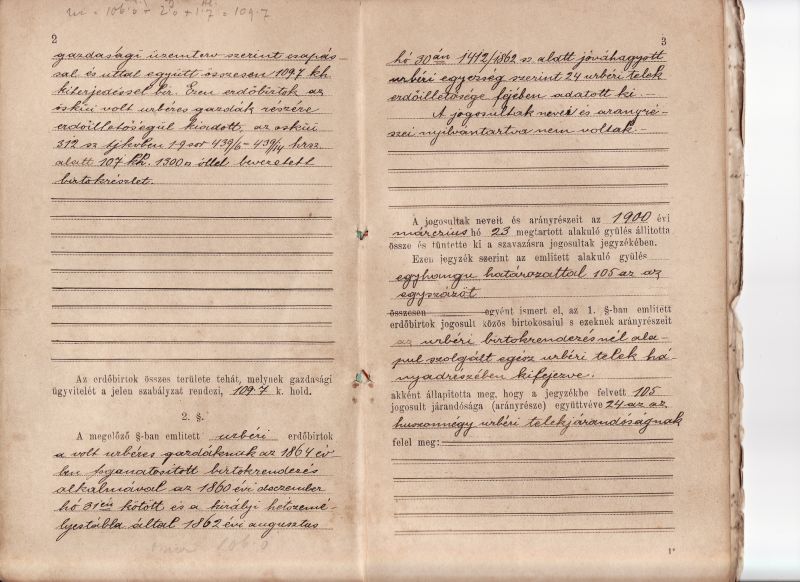 m = 106·0 + 2·0 + 1·7 = 109·7
2
gazdasági üzemterv szerint csapás-
sal és úttal együtt összesen 109.7 kh.
kiterjedéssel bir. Ezen erdőbirtok az
öskűi volt urbéres gazdák részére
erdőilletőségül kiadott, az öskűi
312 sz. tjkvben 1-9 sor 439/6 - 439/14 hrsz.
alatt 107 kh. 1300 öllel bevezetett
birtokrészlet.
Az erdőbirtok összes területe tehát, melynek gazdasági
ügyvitelét a jelen szabályzat rendezi, 109·7 k. hold.
2. §.
A megelőző §-ban emlitett urbéri erdőbirtok
a volt urbéres gazdáknak az 1864 év-
ben foganatositott birtokrendezés
alkalmával az 1860 évi deczember
hó 31én kötött és a királyi hétszemé-
lyestábla által 1862 évi augusztus
106·0
3
hó 30án 1412/1862 sz. alatt jóváhagyott
urbéri egyezség szerint 24 urbéri telek
erdőilletősége fejében adatott ki.-
A jogosultak nevei és arányré-
szei nyilvántartva nem voltak.-
A jogosultak neveit és arányrészeit az 1900 évi
márczius hó 23 megtartott alakuló gyülés állitotta
össze és tüntette ki a szavazásra jogosultak jegyzékében.
Ezen jegyzék szerint az emlitett alakuló gyülés
egyhangu határozattal 105 az az
egyszázöt
összesen egyént ismert el, az 1. §-ban emlitett
erdőbirtok jogosult közös birtokosaiul s ezeknek arányrészeit
az urbéri birtokrendezésnél ala-
pul szolgált egész urbéri telek há-
nyadrészében kifejezve.
akként állapitotta meg, hogy a jegyzékbe felvett 105
jogosult járandósága (arányrésze) együttvéve 24 az az
huszonnégy urbéri telekjárandóságnak
felel meg:
1*